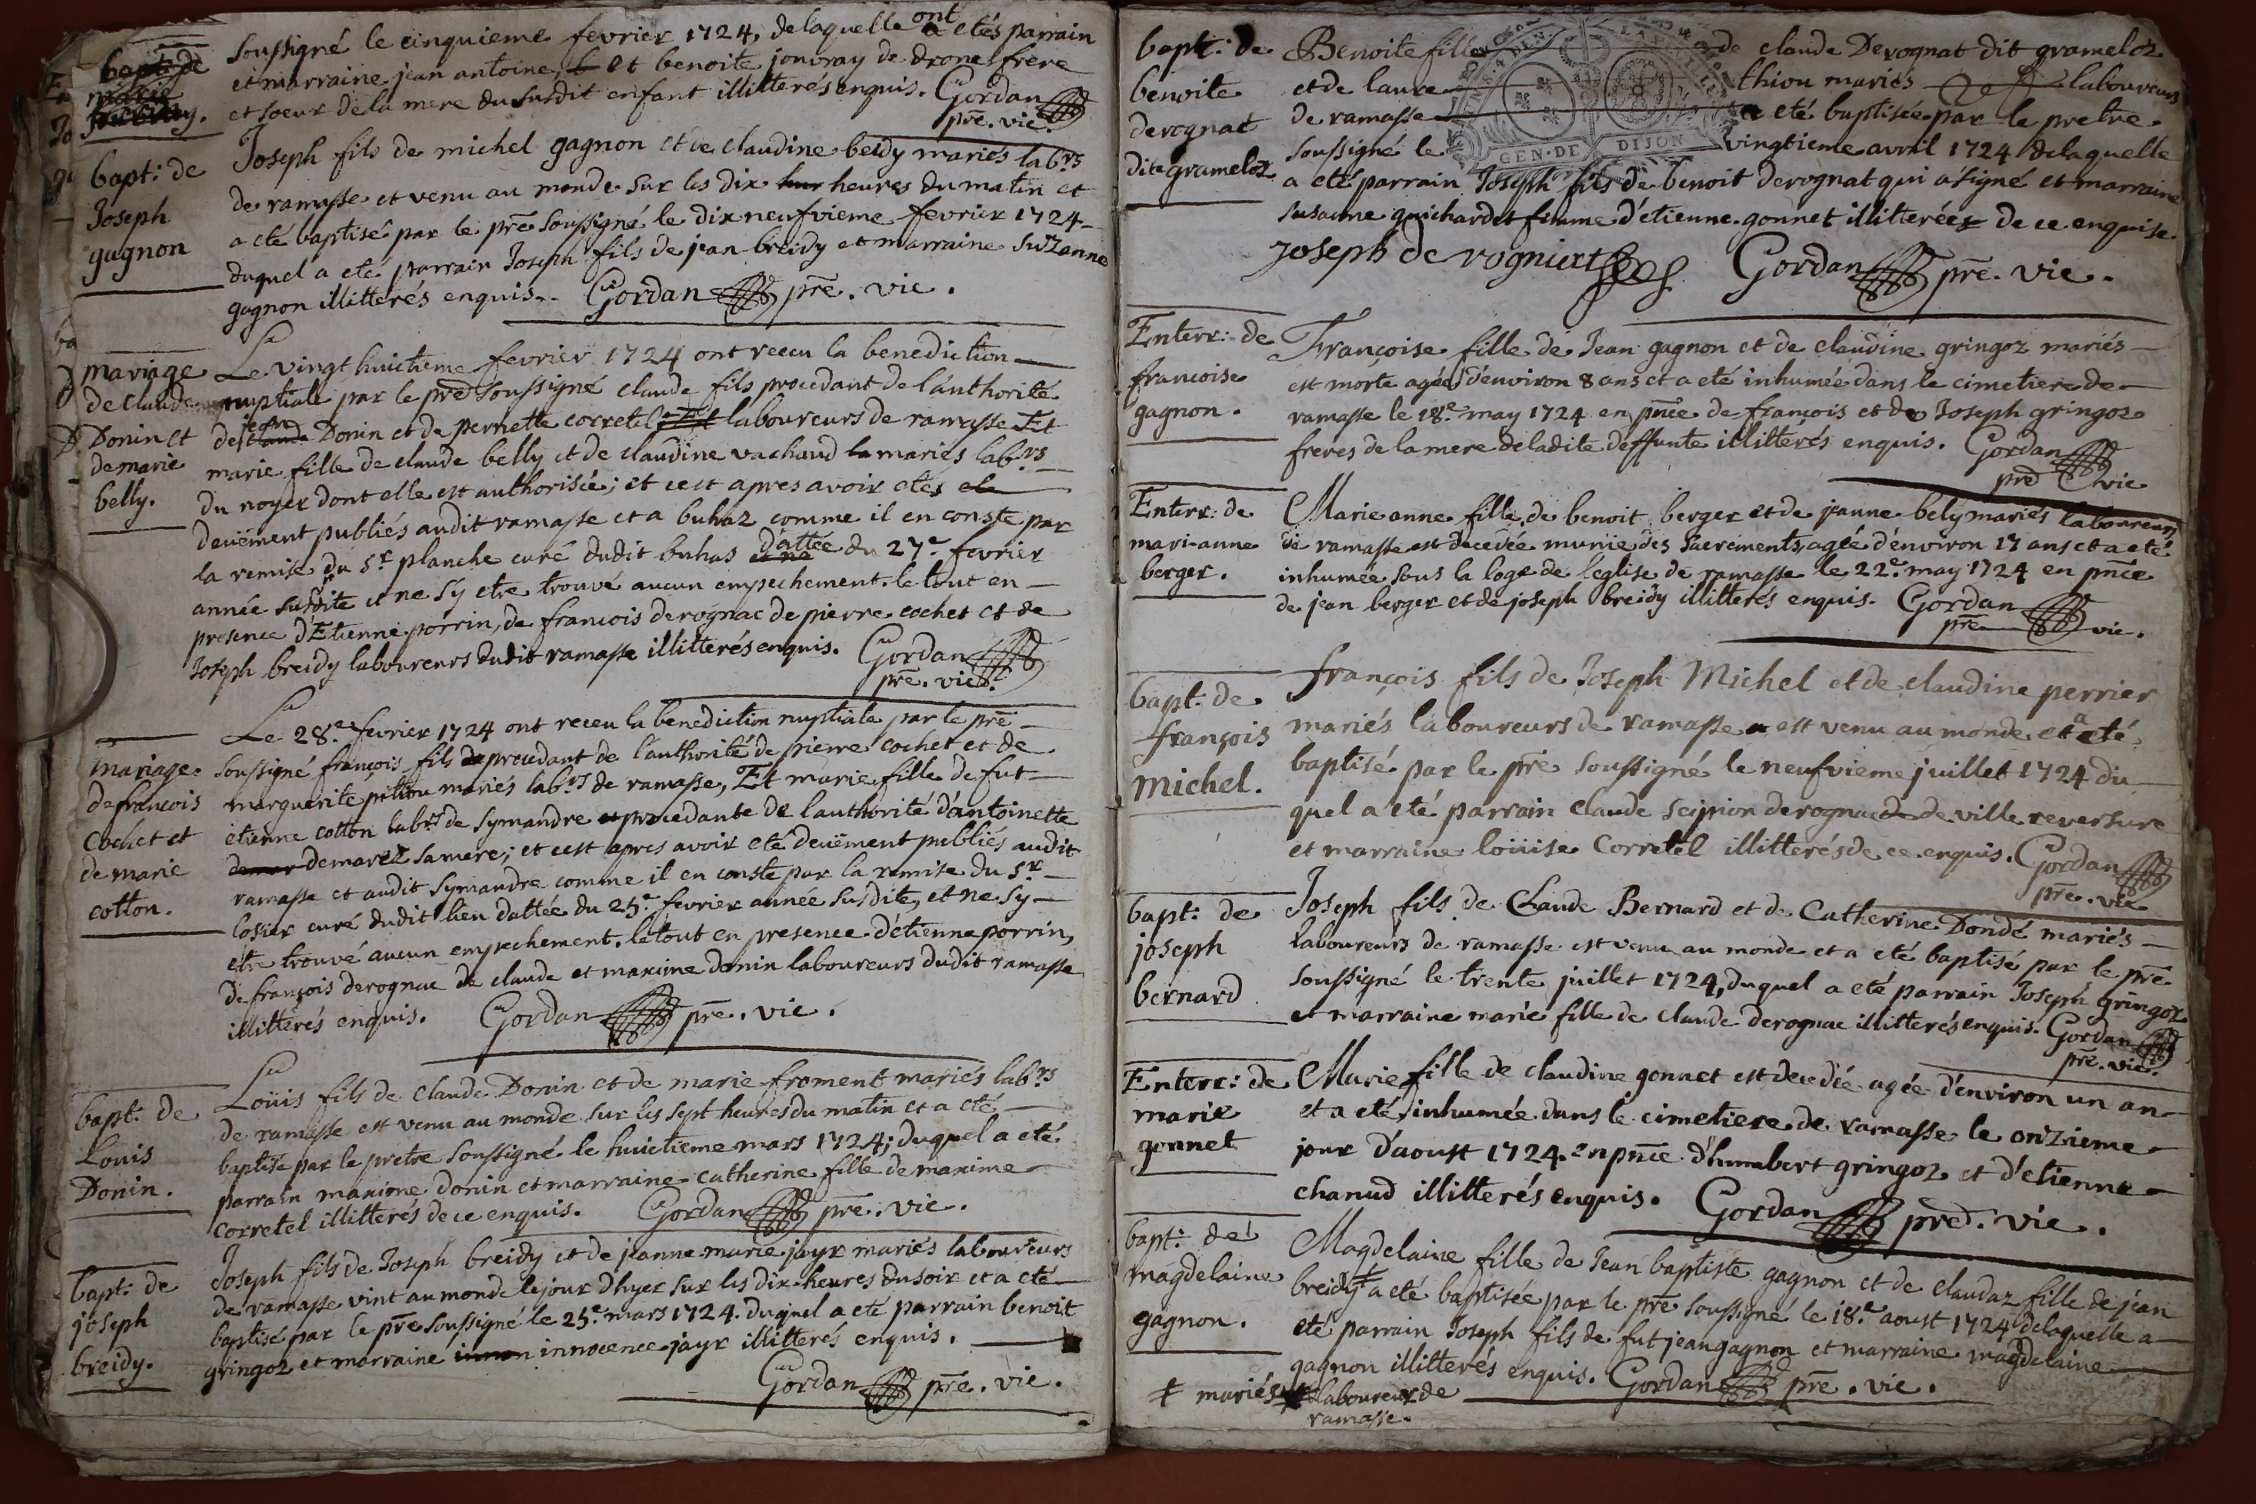 bapt: de
marie
soussigné le cinquieme fevrier 1724, delaquelle ont etés parrain
et marraine jean antoine et benoite jouvray de drone frere
et soeur de la mere du susdit enfant illitterés enquis. Gordan
pre. vic.
bapt: de
Joseph
gagnon
Joseph fils de michel gagnon et de claudine beidy mariés labrs
de ramasse et venu au monde sur les dix heures du matin et
a eté baptisé par le pre soussigné le dix neufvieme fevrier 1724
duquel a eté parrain Joseph fils de jean breidy et marraine suzanne
gagnon illitterés enquis. Gordan pre. vic.
mariage
de claude
Donin et
de marie
belly.
Le vingt huictieme fevrier 1724 ont receu la benediction
nuptiale par le pre soussigné claude fils procedant de l'authorité
de jean Donin et de pernette corretel laboureurs de ramasse Et
marie fille de claude belly et de claudine vachaud mariés labrs
du noyer dont elle est authorisée; et cest apres avoir etés
deuëment publiés audit ramasse et a buhaz comme il en conste par
la remise du sr planche curé dudit buhas dattée du 27e fevrier
année susdite et ne sy etre trouvé aucun empechement. le tout en
presence d'Etienne porrin, de francois derognac de pierre cochet et de
Joseph breidy laboureurs dudit ramasse illitterés enquis. Gordan
pre. vic.
mariage
de francois
Cochet et
de marie
cotton.
Le 28e fevrier 1724 ont receu la benediction nuptiale par le pre
soussigné francois fils procedant de l'authorité de pierre cochet et de
marguerite pithiou mariés labrs de ramasse, Et marie fille de fut
etienne cotton labrs de symandre procedante de l'authorité d'antoinette
demarez sa mere; et cest apres avoir eté deuëment publiés audit
ramasse et audit symandre comme il en conste par la remise du sr
losier curé dudit lieu dattée du 25e fevrier année susdite, et ne sy
etre trouvé aucun empechement. le tout en presence d'étienne porrin,
de françois derognac de claude et maxime donin laboureurs dudit ramasse
illitterés enquis. Gordan pre. vic.
bapt: de
Louis
Donin.
Loüis fils de claude Donin et de marie froment mariés labrs
de ramasse est venu au monde sur les sept heures du matin et a eté
baptisé par le pretre soussigné le huictieme mars 1724; duquel a eté
parrain maxime donin et marraine catherine fille de maxime
corretel illitterés de ce enquis. Gordan pre. vic.
bapt: de
joseph
breidy.
Joseph fils de Joseph breidy et de jeanne marie jayr mariés laboureurs
de ramasse vint au monde le jour dhyer sur les dix heures du soir et a eté
baptisé par le pre soussigné le 25e mars 1724. duquel a eté parrain benoit
gringoz et marraine innocence jayr illitterés enquis.
Gordan pre. vic.
bapt: de
benoite
derognat
dite grameloz
Benoite fille de claude Derognat dit grameloz
et de laure thiou mariés laboureurs
de ramasse a eté baptisée par le pretre
soussigné le vingtieme avril 1724 delaquelle
a eté parrain Joseph fils de benoit derognat qui a signé et marraine
susanne guichardet femme d'etienne gonnet illitterée de ce enquise
joseph de rogniert Gordan pre. vic.
Enterr: de
francoise
gagnon.
Françoise fille de Jean gagnon et de claudine gringoz mariés
est morte agée d'environ 8 ans et a eté inhumée dans le cimetiere de
ramasse le 18e may 1724 en pnce de françois et de Joseph gringoz
freres de la mere deladite deffunte illitterés enquis. Gordan
pre vic
Enterr: de
mari-anne
berger.
Marie anne fille de benoit berger et de jeanne bely mariés laboureurs
de ramasse est decedée muniie des sacrements, agée d'environ 17 ans et a eté
inhumée sous la loge de l'eglise de ramasse le 22e may 1724 en pnce
de jean berger et de joseph breidy illitterés enquis. Gordan
pre vic.
bapt: de
françois
michel.
françois fils de Joseph Michel et de claudine perrier
mariés laboureurs de ramasse est venu au monde et a eté
baptisé par le pre soussigné le neufvieme juillet 1724 du
quel a eté parrain claude scipion derognac de ville reversure
et marraine loüise Corretel illitterés de ce enquis. Gordan
pre. vic
bapt: de
joseph
bernard
Joseph fils de Claude Bernard et de Catherine Dondé mariés
laboureurs de ramasse est venu au monde et a eté baptisé par le pre
soussigné le trente juillet 1724, duquel a eté parrain Joseph gringoz
et marraine marie fille de claude derognac illitterés enquis. Gordan
pre. vic.
Enterr: de
marie
gonnet
Marie fille de claudine gonnet est decedée agée d'environ un an
et a eté inhumée dans le cimetiere de ramasse le onzieme
jour d'aoust 1724. en pnce d'humbert gringoz et d'etienne
chanud illitterés enquis. Gordan pre. vic.
bapt: de
magdelaine
gagnon.
Magdelaine fille de Jean baptiste gagnon et de claudaz fille de jean
breidy ‡ a eté baptisée par le pre soussigné le 18e aoust 1724 delaquelle a
eté parrain Joseph fils de fut jean gagnon et marraine magdelaine
gagnon illitterés enquis. Gordan pre. vic.
‡ mariés laboureur de
ramasse.
GEN·DE DIJON